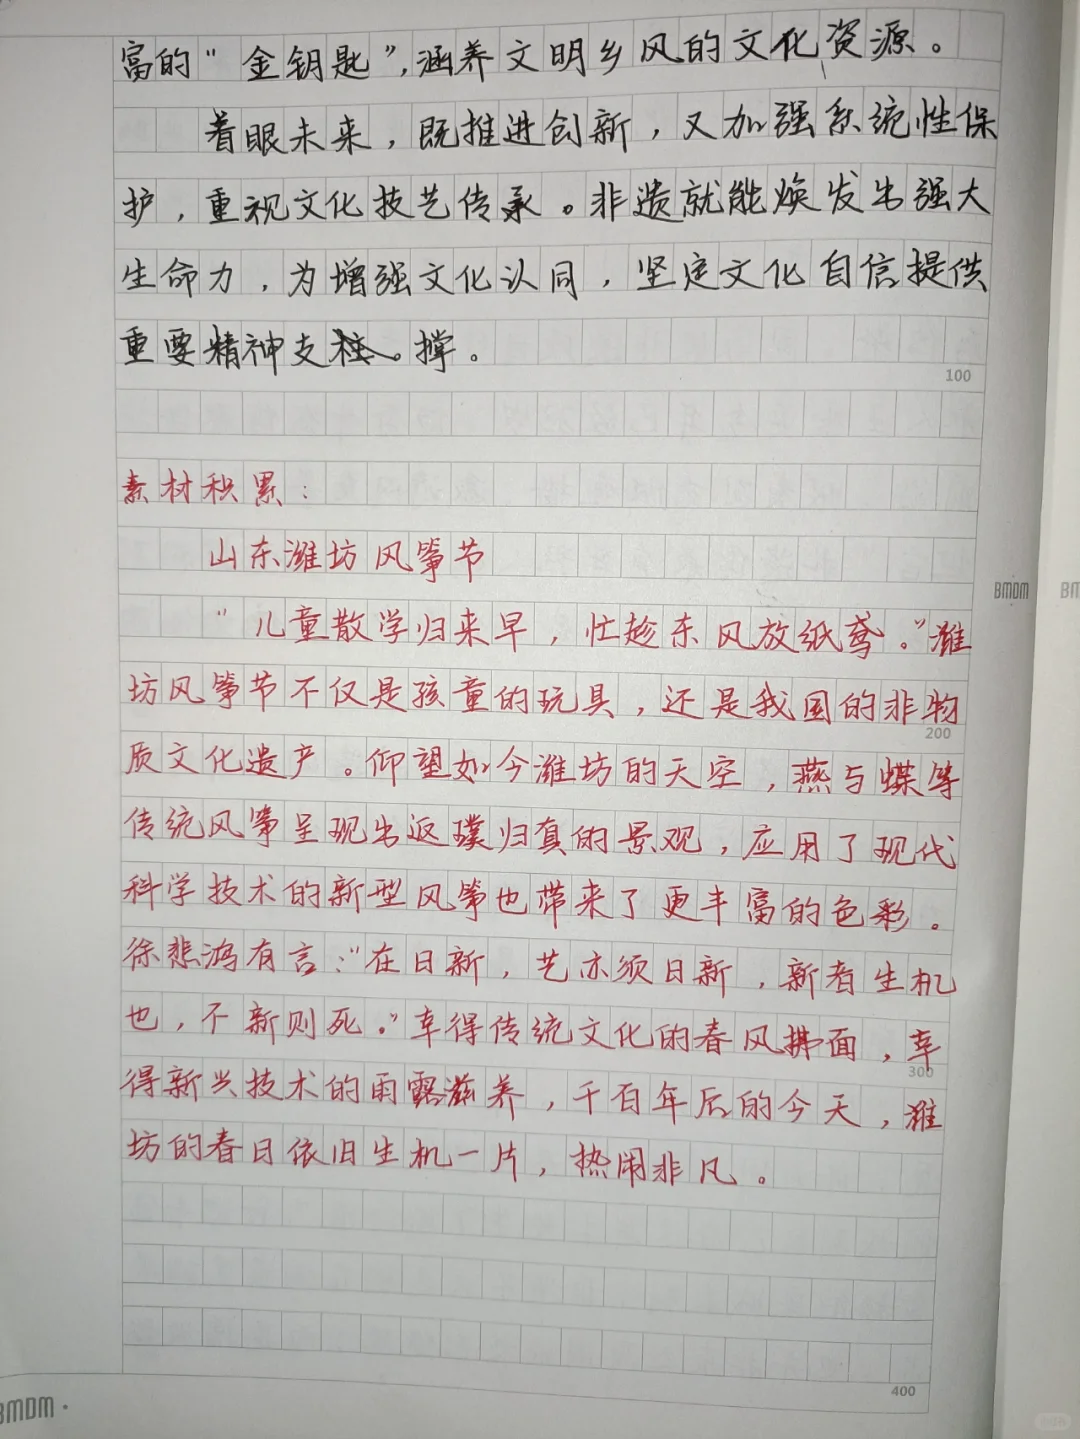 富的“金钥匙”，涵养文明乡风的文化资源。
着眼未来，既推进创新，又加强系统性保
护，重视文化技艺传承。非遗就能焕发出强大
生命力，为增强文化认同，坚定文化自信提供
重要精神支撑。
100
素材积累：
山东潍坊风筝节
“儿童散学归来早，忙趁东风放纸鸢。”潍
坊风筝节不仅是孩童的玩具，还是我国的非物
200
质文化遗产。仰望如今潍坊的天空，燕与蝶等
传统风筝呈现出返璞归真的景观，应用了现代
科学技术的新型风筝也带来了更丰富的色彩。
徐悲鸿有言：“在日新，艺亦须日新，新者生机
也，不新则死。”幸得传统文化的春风拂面，幸
300
得新兴技术的雨露滋养，千百年后的今天，潍
坊的春日依旧生机一片，热闹非凡。
400
BMDM
BMDM
BM